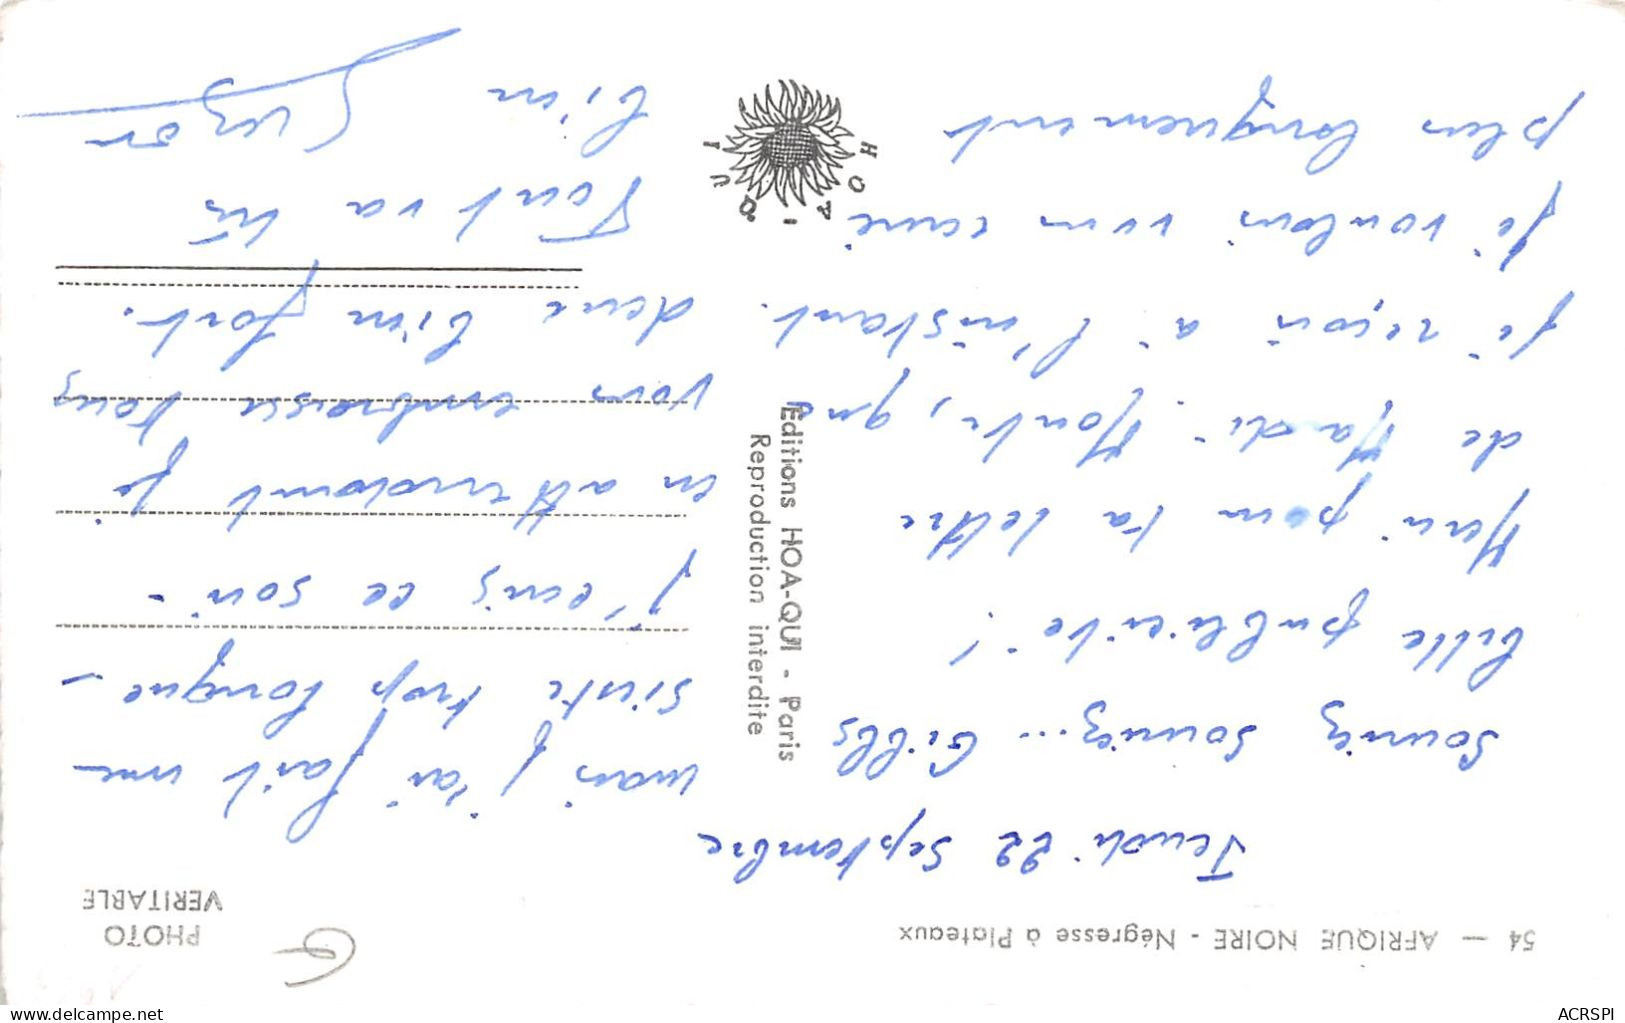 54 — AFRIQUE NOIRE - Négresse à Plateaux
PHOTO
VERITABLE
Jeudi 22 Septembre
Souriez souriez... Gibbs
vous publicité !
Merci pour ta lettre
de Mardi. Monte, que
je reçois à l'instant.
je voulais vous écrire
plus longuement
mais j'ai fait une
sieste trop longue -
j'écris ce soir -
en attendant je
vous embrasse tous
deux bien fort.
Tout va très
bien
Suzon
Editions HOA-QUI - Paris
Reproduction interdite
HOA-QUI
delcampe.net
ACRSPI